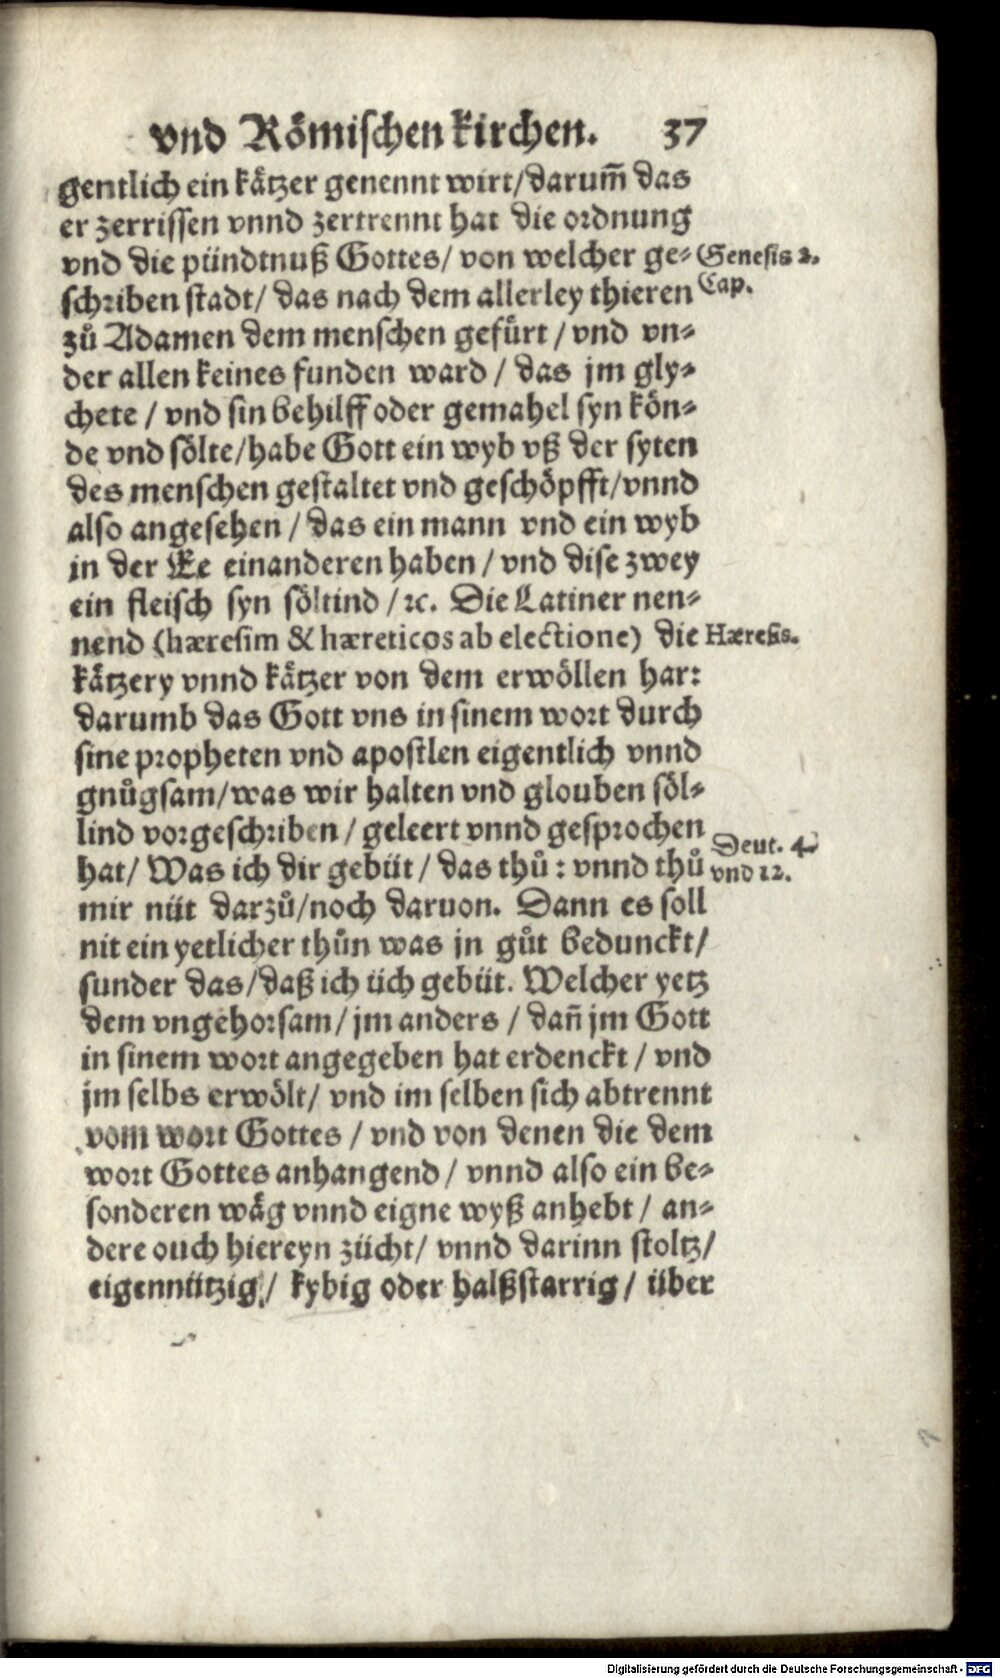 vnd Römischen kirchen. 37
gentlich ein kätzer genennt wirt/darum̃ das
er zerrissen vnnd zertrennt hat die ordnung
vnd die pündtnuß Gottes/ von welcher ge⸗
Genesis 2.
Cap.
schriben stadt/ das nach dem allerley thieren
zů Adamen dem menschen gefürt / vnd vn⸗
der allen keines funden ward / das jm gly⸗
chete / vnd sin behilff oder gemahel syn kön⸗
de vnd sölte/habe Gott ein wyb vß der syten
des menschen gestaltet vnd geschöpfft/vnnd
also angesehen / das ein mann vnd ein wyb
in der Ee einanderen haben / vnd dise zwey
ein fleisch syn söltind /ꝛc. Die Latiner nen⸗
nend (hæresim & hæreticos ab electione) die
Hæresis.
kätzery vnnd kätzer von dem erwöllen har:
darumb das Gott vns in sinem wort durch
sine propheten vnd apostlen eigentlich vnnd
gnůgsam/was wir halten vnd glouben söl⸗
lind vorgeschriben / geleert vnnd gesprochen
hat/ Was ich dir gebüt / das thů : vnnd thů
Deut. 4.
vnd 12.
mir nüt darzů/noch daruon. Dann es soll
nit ein yetlicher thůn was jn gůt bedunckt/
sunder das/daß ich üch gebüt. Welcher yetz
dem vngehorsam/ jm anders / dañ jm Gott
in sinem wort angegeben hat erdenckt / vnd
jm selbs erwölt/ vnd im selben sich abtrennt
vom wort Gottes / vnd von denen die dem
wort Gottes anhangend / vnnd also ein be⸗
sonderen wäg vnnd eigne wyß anhebt / an⸗
dere ouch hiereyn zücht/ vnnd darinn stoltz/
eigennützig/ kybig oder halßstarrig / über
Digitalisierung gefördert durch die Deutsche Forschungsgemeinschaft - DFG